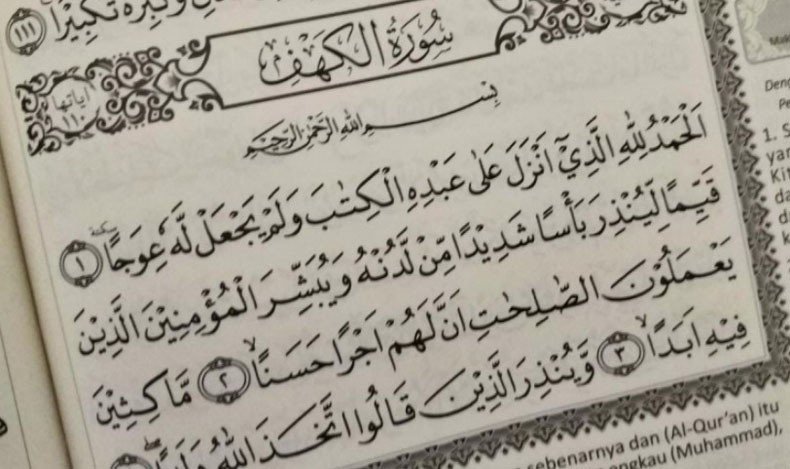 وَكَبِّرْهُ تَكْبِيْرًا ۝١١١
سُورَةُ الْكَهْفِ
اٰيَاتُهَا ١١٠
بِسْمِ اللّٰهِ الرَّحْمٰنِ الرَّحِيْمِ
اَلْحَمْدُ لِلّٰهِ الَّذِيْٓ اَنْزَلَ عَلٰى عَبْدِهِ الْكِتٰبَ وَلَمْ يَجْعَلْ لَّهٗ عِوَجًا ۜ ١
قَيِّمًا لِّيُنْذِرَ بَأْسًا شَدِيْدًا مِّنْ لَّدُنْهُ وَيُبَشِّرَ الْمُؤْمِنِيْنَ الَّذِيْنَ
يَعْمَلُوْنَ الصّٰلِحٰتِ اَنَّ لَهُمْ اَجْرًا حَسَنًاۙ ٢ مَّاكِثِيْنَ
فِيْهِ اَبَدًاۙ ٣ وَّيُنْذِرَ الَّذِيْنَ قَالُوا اتَّخَذَ اللّٰهُ وَلَدًا
Deng
1. S
yan
Kit
da
d
k
sebenarnya dan (Al-Qur'an) itu
engkau (Muhammad),